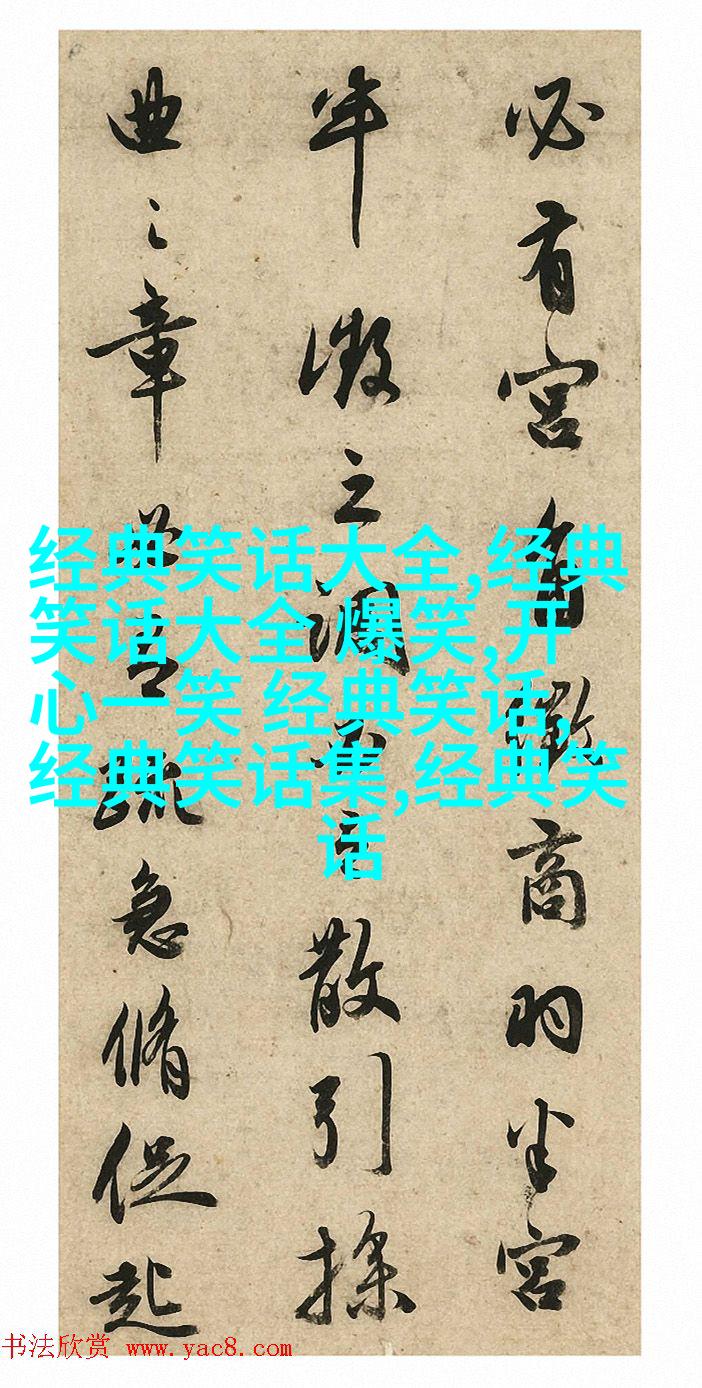 必有宮角徵商羽半宮
半徵之調散引操
曲之章急脩促起
经典笑话大全,经典
笑话大全 爆笑,开
心一笑 经典笑话,
经典笑话集,经典笑
话
书法欣赏 www.yac8.com